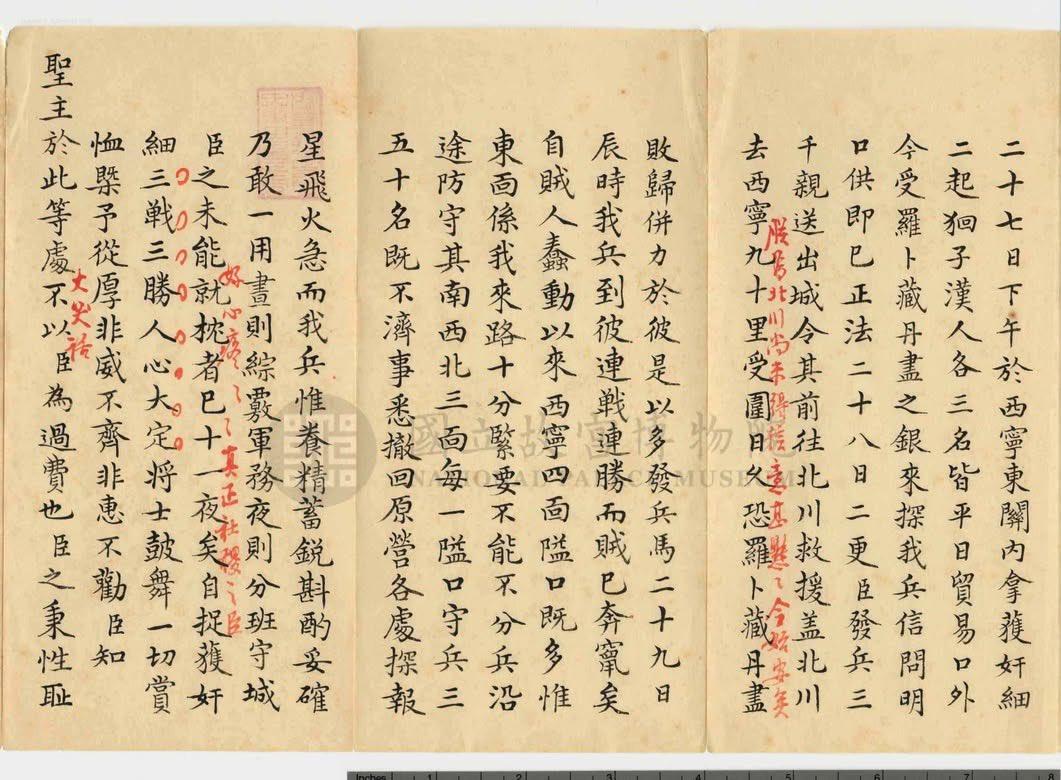 二十七日下午於西寧東關內拿獲奸細
二起狪子漢人各三名皆平日貿易口外
今受羅卜藏丹盡之銀來探我兵信問明
口供即已正法二十八日二更臣發兵三
千親送出城令其前往北川救援盖北川
朕為北川尚未得信意甚懸〻今始安矣
去西寧九十里受圍日久恐羅卜藏丹盡
敗歸併力於彼是以多發兵馬二十九日
辰時我兵到彼連戰連勝而賊已奔竄矣
自賊人蠢動以來西寧四面隘口既多惟
東面係我來路十分緊要不能不分兵沿
途防守其南西北三面每一隘口守兵三
五十名既不濟事悉撤回原營各處探報
星飛火急而我兵惟養精蓄銳斟酌妥確
乃敢一用晝則綜覈軍務夜則分班守城
好心疼〻〻真正社稷之臣
臣之未能就枕者已十一夜矣自捉獲奸
細三戰三勝人心大定将士鼓舞一切賞
恤槩予從厚非威不齊非惠不勸臣知
大笑話
聖主於此等處不以臣為過費也臣之秉性耻
國立故宮博物院
NATIONAL PALACE MUSEUM
Inches 1 2 3 4 5 6 7 8